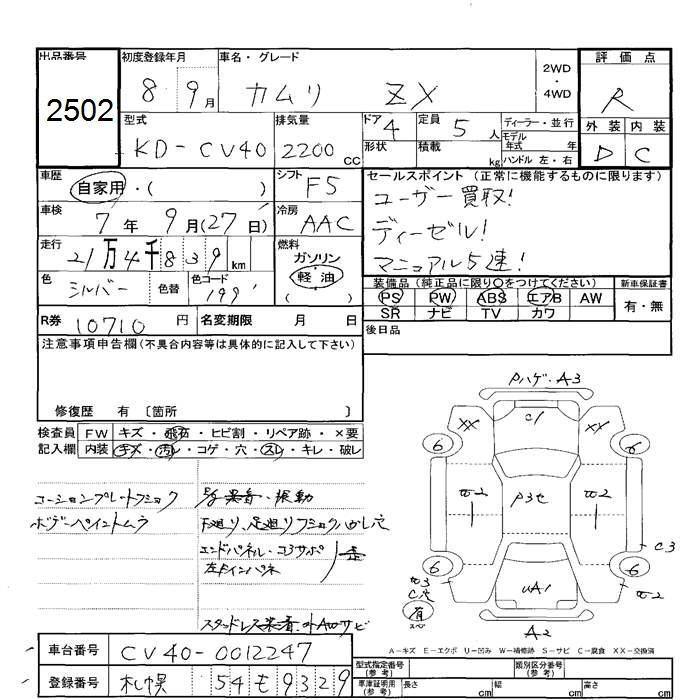 出品番号 2502
初度登録年月 8 9月
車名・グレード カムリ ZX
2WD・4WD
評価点 R
外装 内装
D C
型式 KD-CV40
排気量 2200cc
ドア 4
形状
定員 5人
積載 kg
ディーラー・並行
モデル年式 年式
ハンドル 左・右
車歴 自家用・( )
シフト F5
車検 7年 9月(27日)
冷房 AAC
走行 21万4千839km
燃料 ガソリン 軽油
色 シルバー 色替 色コード 199
R券 10710円 名変期限 月 日
セールスポイント (正常に機能するものに限ります)
ユーザー買取!
ディーゼル!
マニュアル5速!
装備品 (純正品に限り○をつけてください) 新車保証書
PS PW ABS エアB AW 有・無
SR ナビ TV カワ
後日品
注意事項申告欄(不具合内容等は具体的に記入して下さい)
修復歴 有 〔箇所 〕
検査員記入欄
FW キズ・飛石・ヒビ割・リペア跡・×要
内装 キズ・汚れ・コゲ・穴・スレ・キレ・破レ
コーションプレートフショク
ボデーペイントムラ
振動
下廻り、足廻りフショク
エンドパネル・コアサポ
左Fインパネ 歪
スタッドレス装着
PハゲA3
C1
XX XX
6 6
P3セ
C3
6 6
UA1
有
A2
A=キズ E=エクボ U=凹み W=補修跡 S=サビ C=腐食 XX=交換済
車台番号 CV40-0012247
登録番号 札幌 54 モ 9329
型式指定番号(参考) 類別区分番号(参考)
車庫証明用(参考) 長さ cm 幅 cm 高さ cm